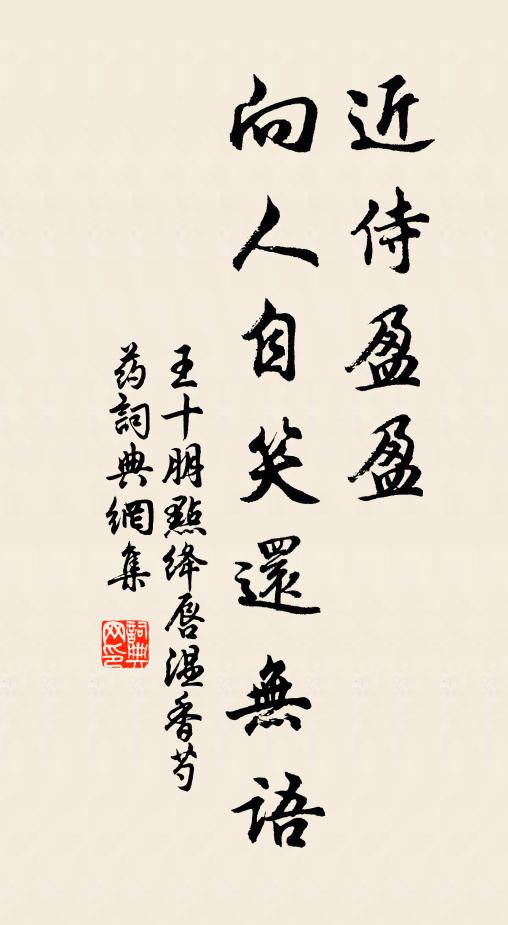 近侍盈盈
向人自笑還無語
王十朋點绛唇温香芍
药詞典網集
詞典
网印